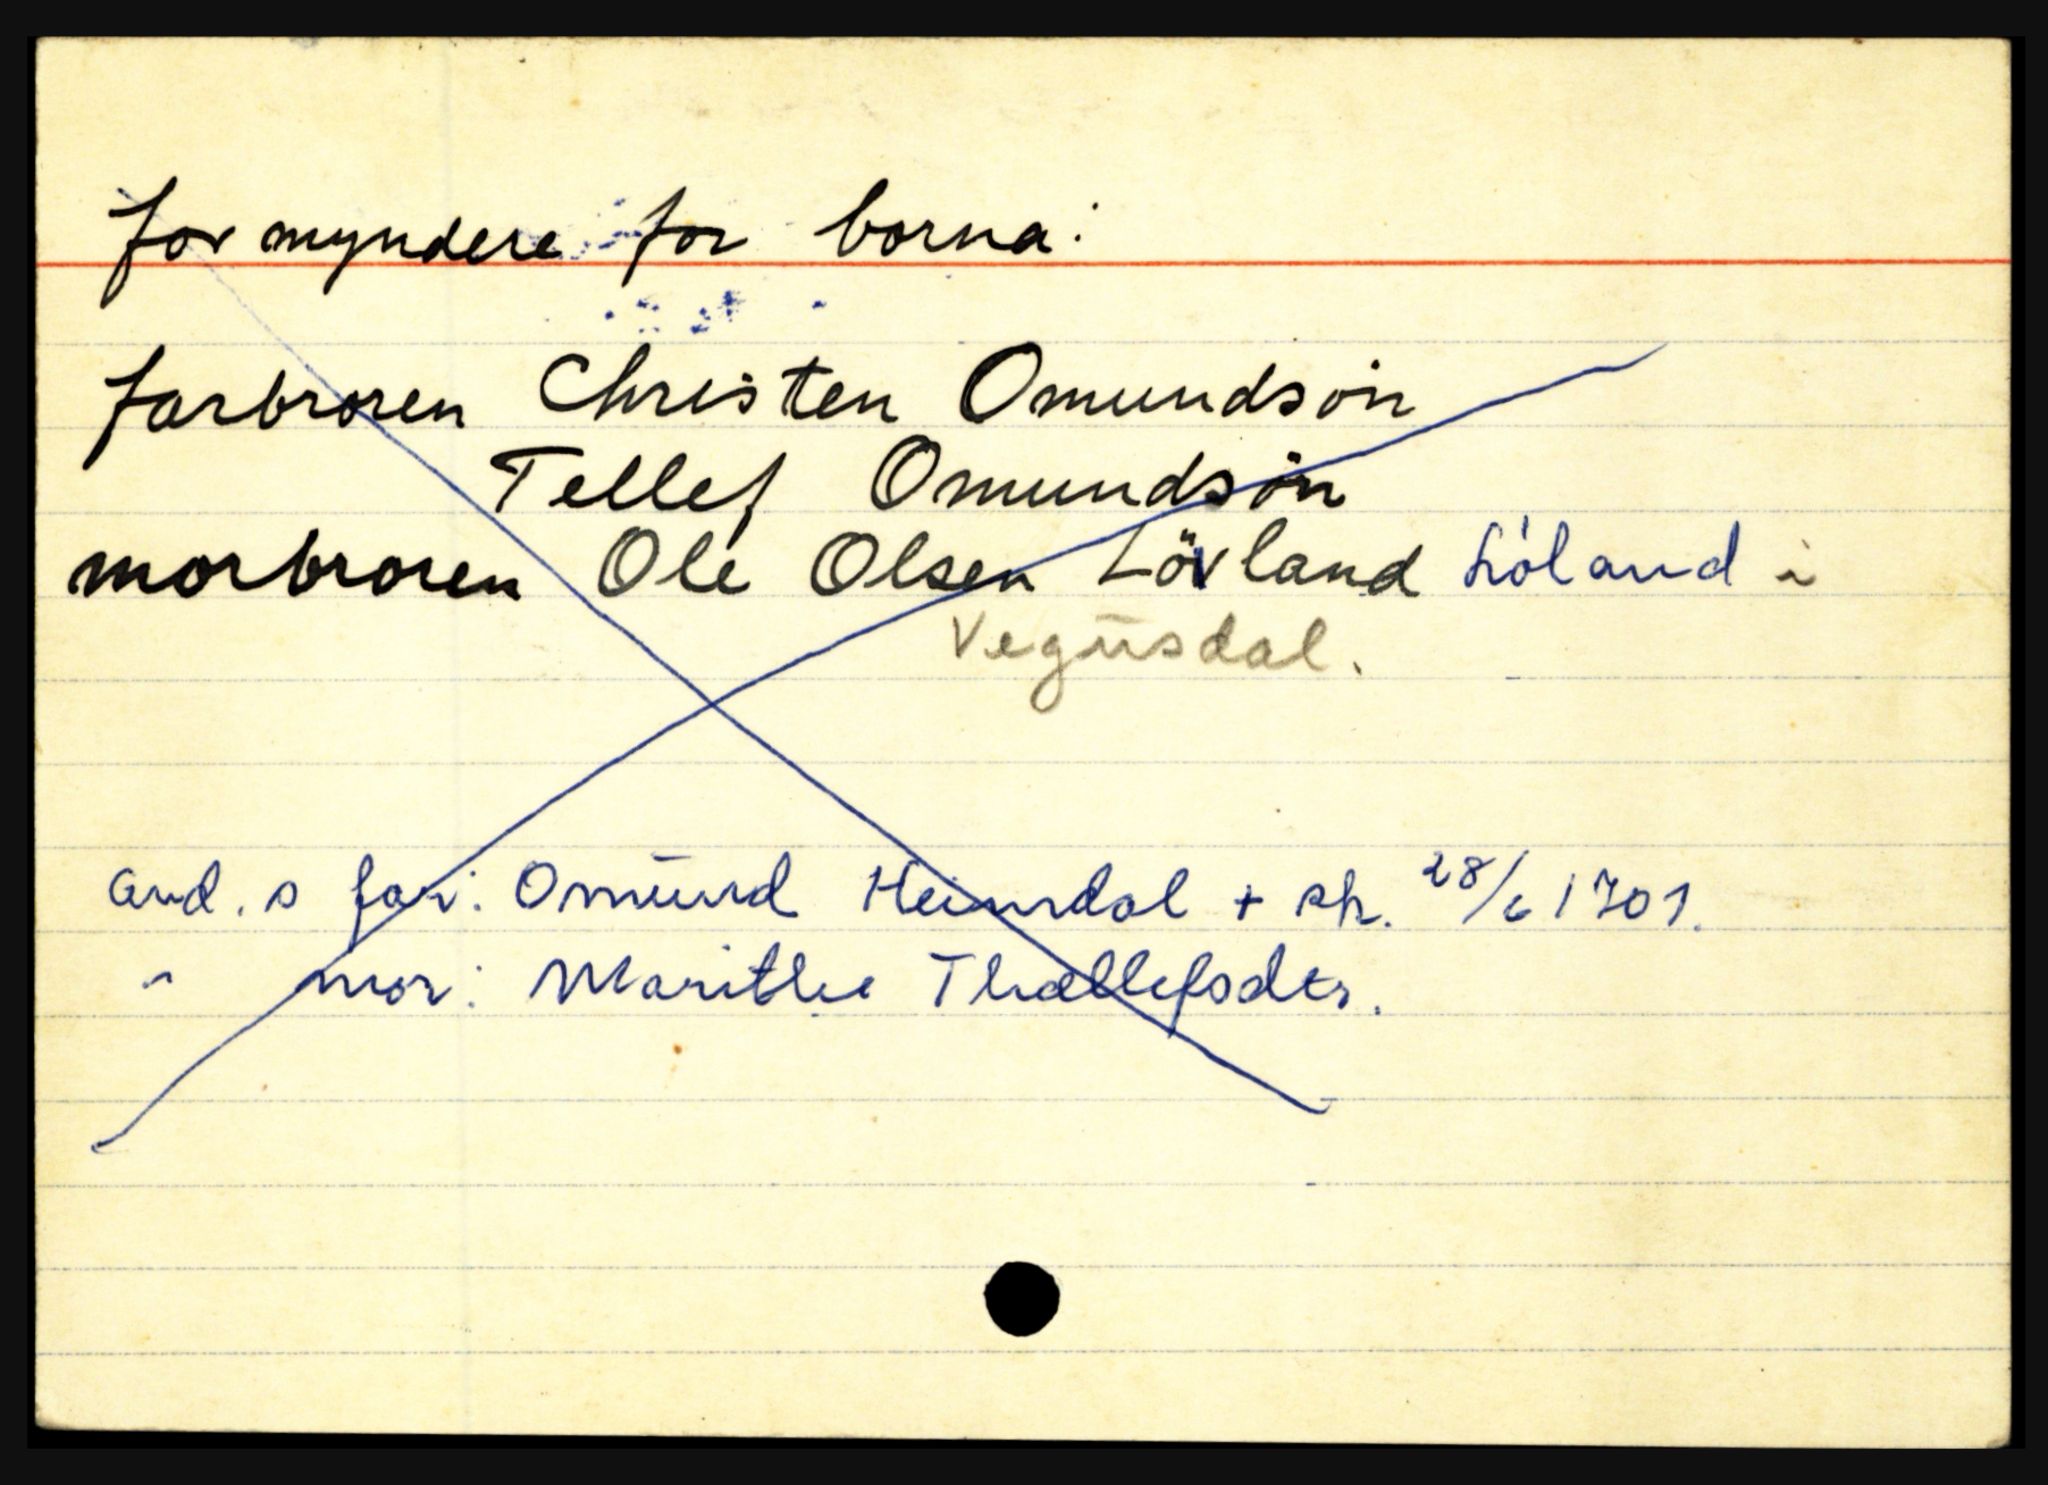 formyndere for borna:
farbroren Christen Omundsøn
Tellef Omundsøn
morbroren Ole Olsen Lövland Lióland i
Vegusdal.
And. s far: Omund Heimdal + sk. 28/6 1701.
" mor: Marithe Thællefsdtr.